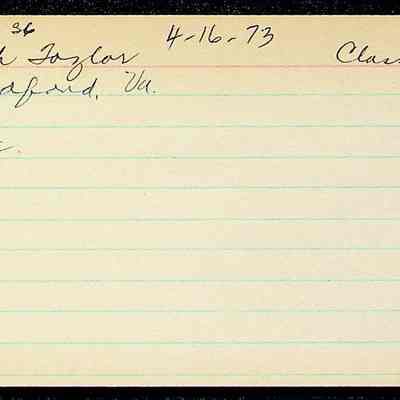 36
h Taylor 4-16-73 Clas
dford, Va.